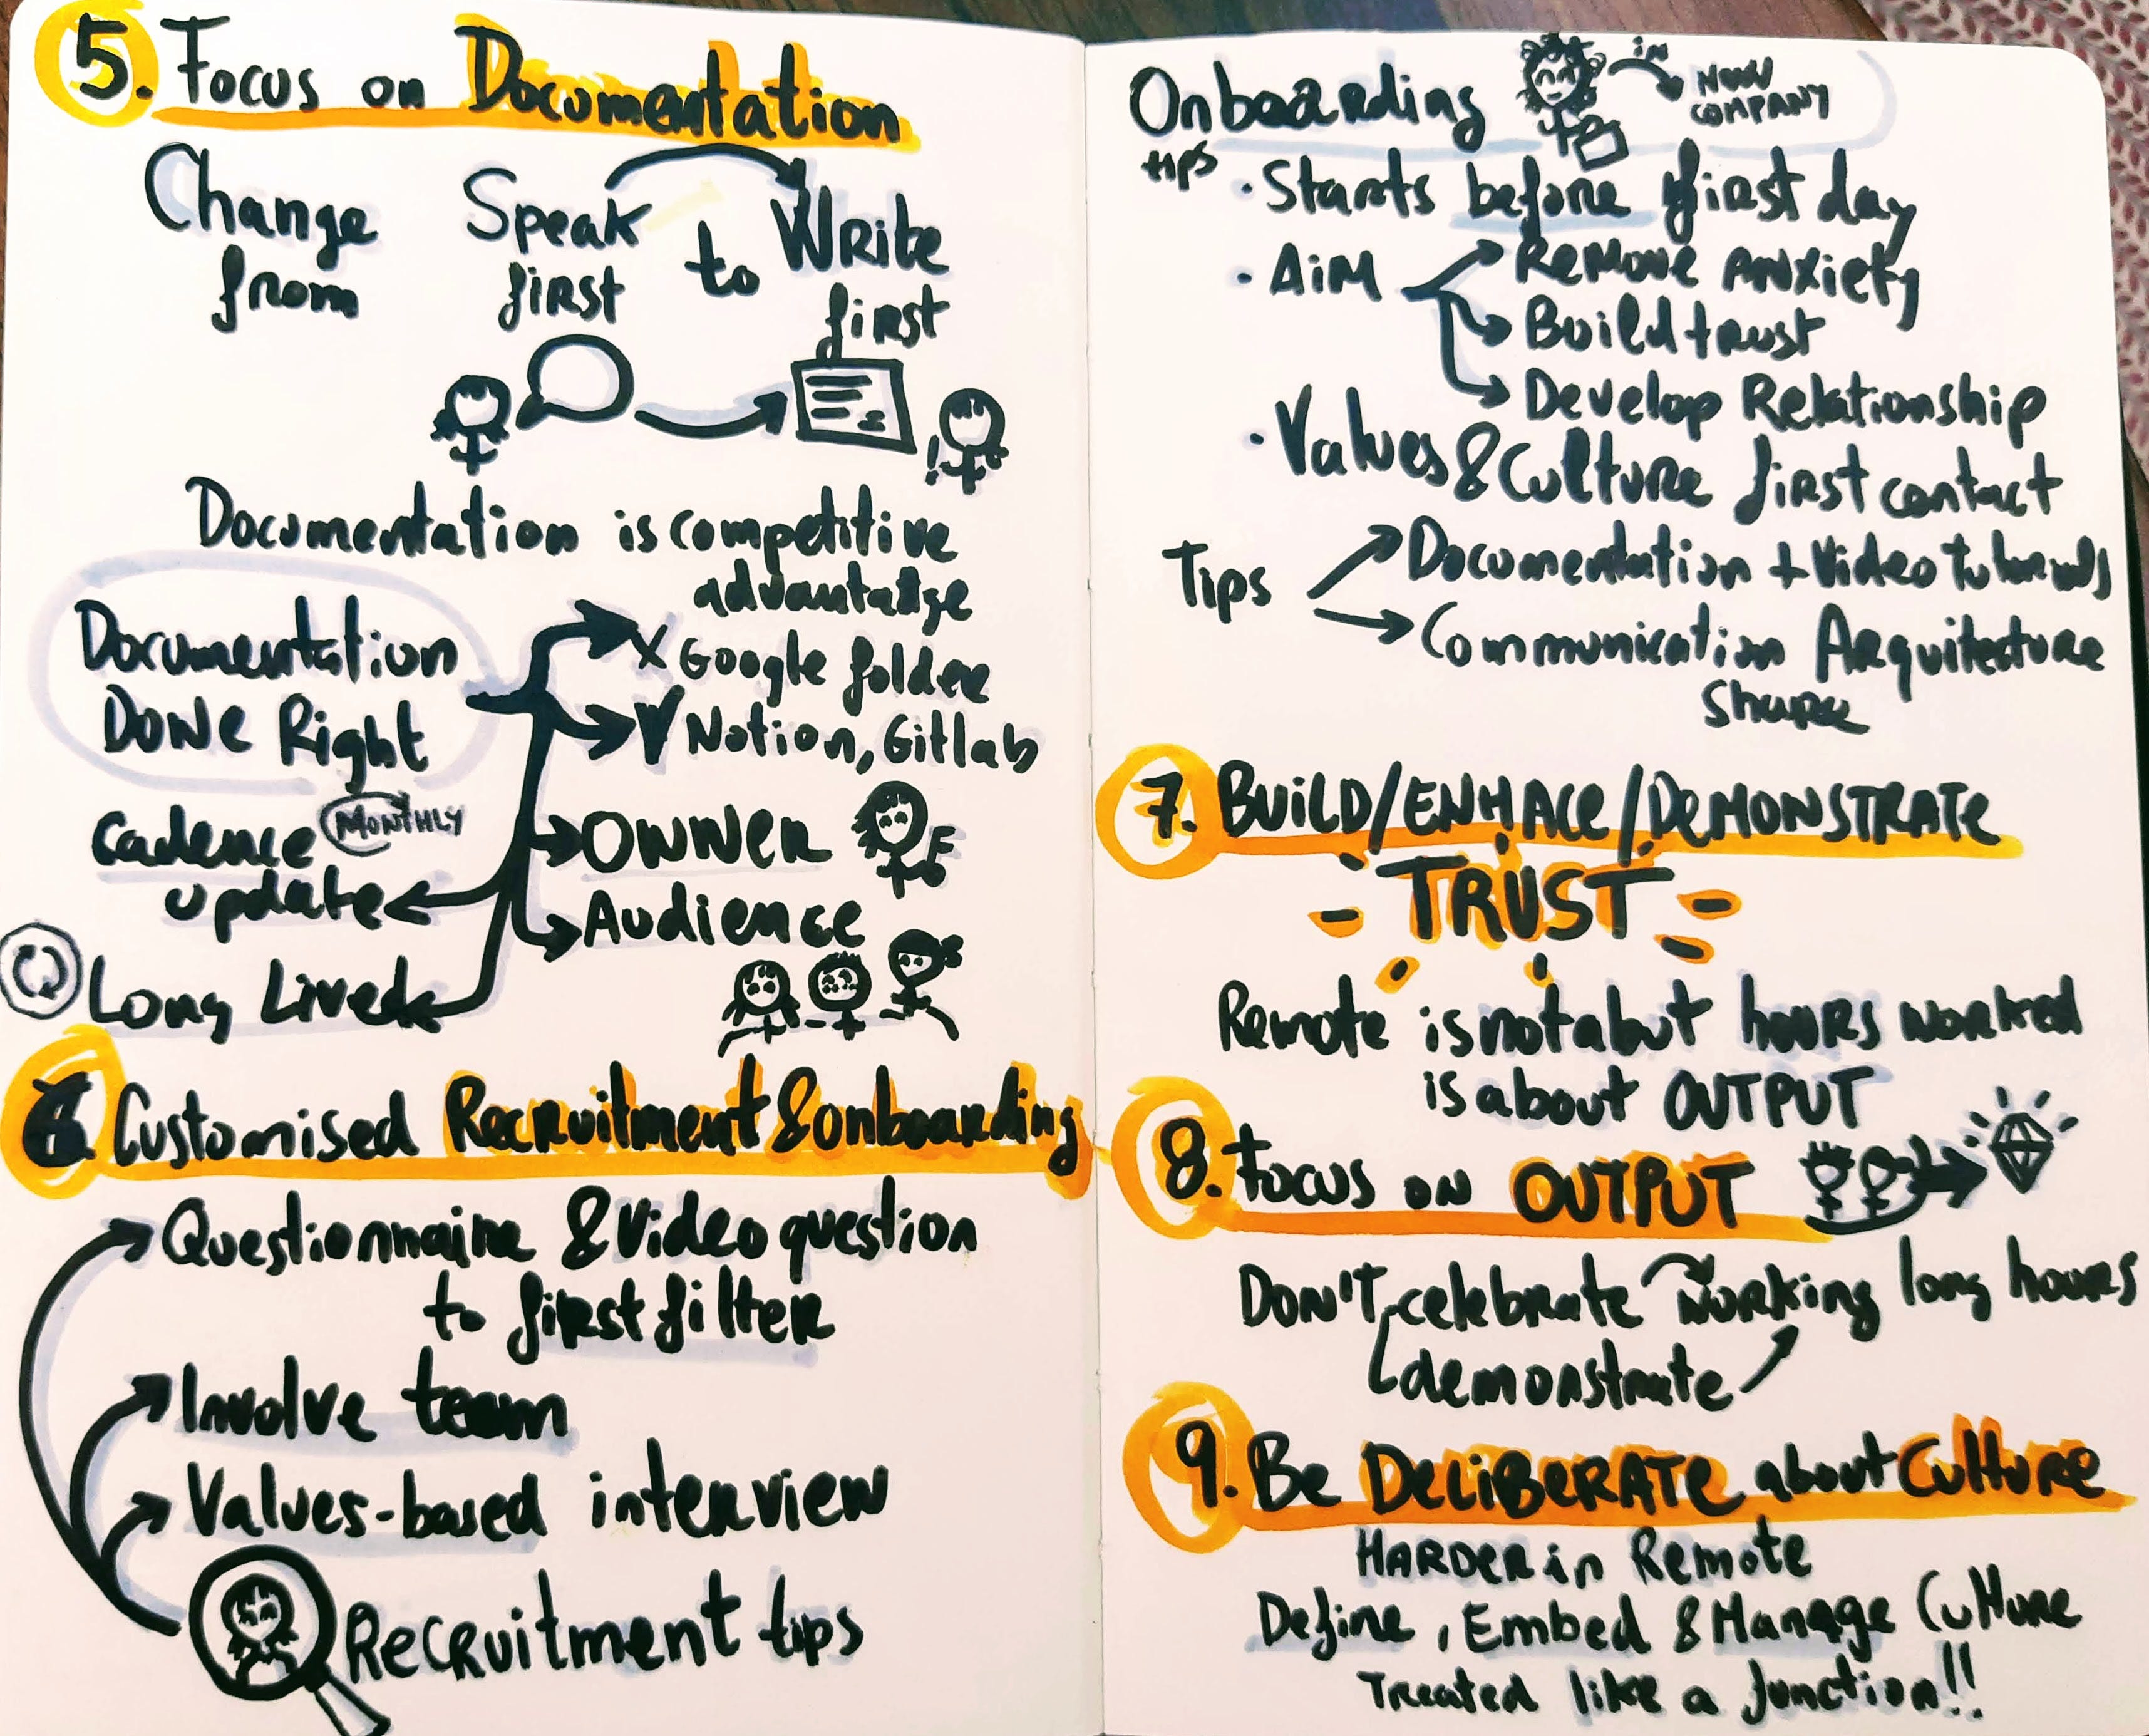 5. Focus on Documentation
Change from
Speak first
to
Write first
Documentation is competitive
advantatge
Documentation
Done Right
X Google folder
✓ Notion, Gitlab
Owner
Audience
Cadence MONTHLY
update
Long Lived
6. Customised Recruitment & onboarding
Questionnaire & Video question
to first filter
Involve team
Values-based interview
Recruitment tips
Onboarding
tips
in
NEW
COMPANY
· Starts before first day
· AiM
Remove Anxiety
Build trust
Develop Relationship
· Values & Culture first contact
Tips
Documentation + Video tutorials
Communication Arquitecture
Share
7. BUILD/ENHACE/DEMONSTRATE
TRUST
Remote is not abut hours worked
is about OUTPUT
8. Focus on OUTPUT
DON'T celebrate working long hours
demonstrate
9. Be DELIBERATE about Culture
HARDER in Remote
Define, Embed & Manage Culture
Treated like a function!!